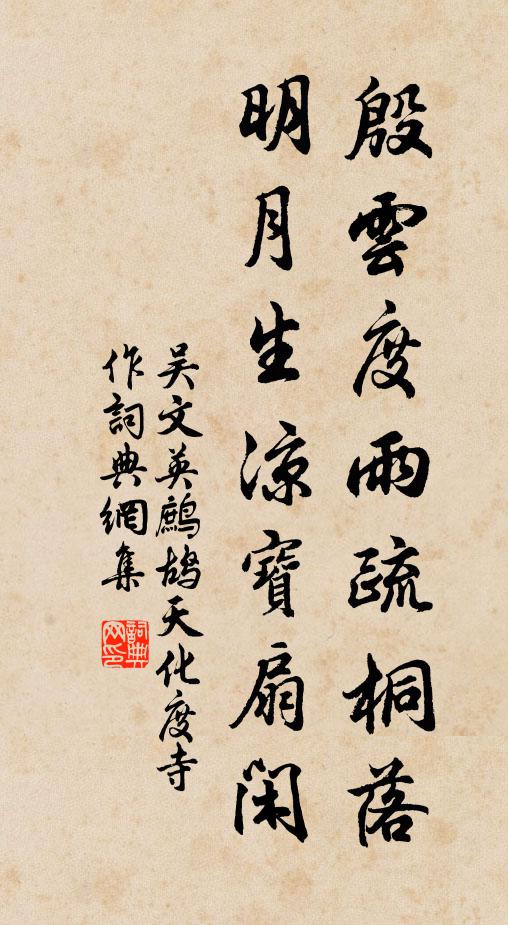 殷雲度雨疏桐落
明月生涼寶扇閑
吴文英鷓鴣天化度寺
作詞典網集
詞典網印